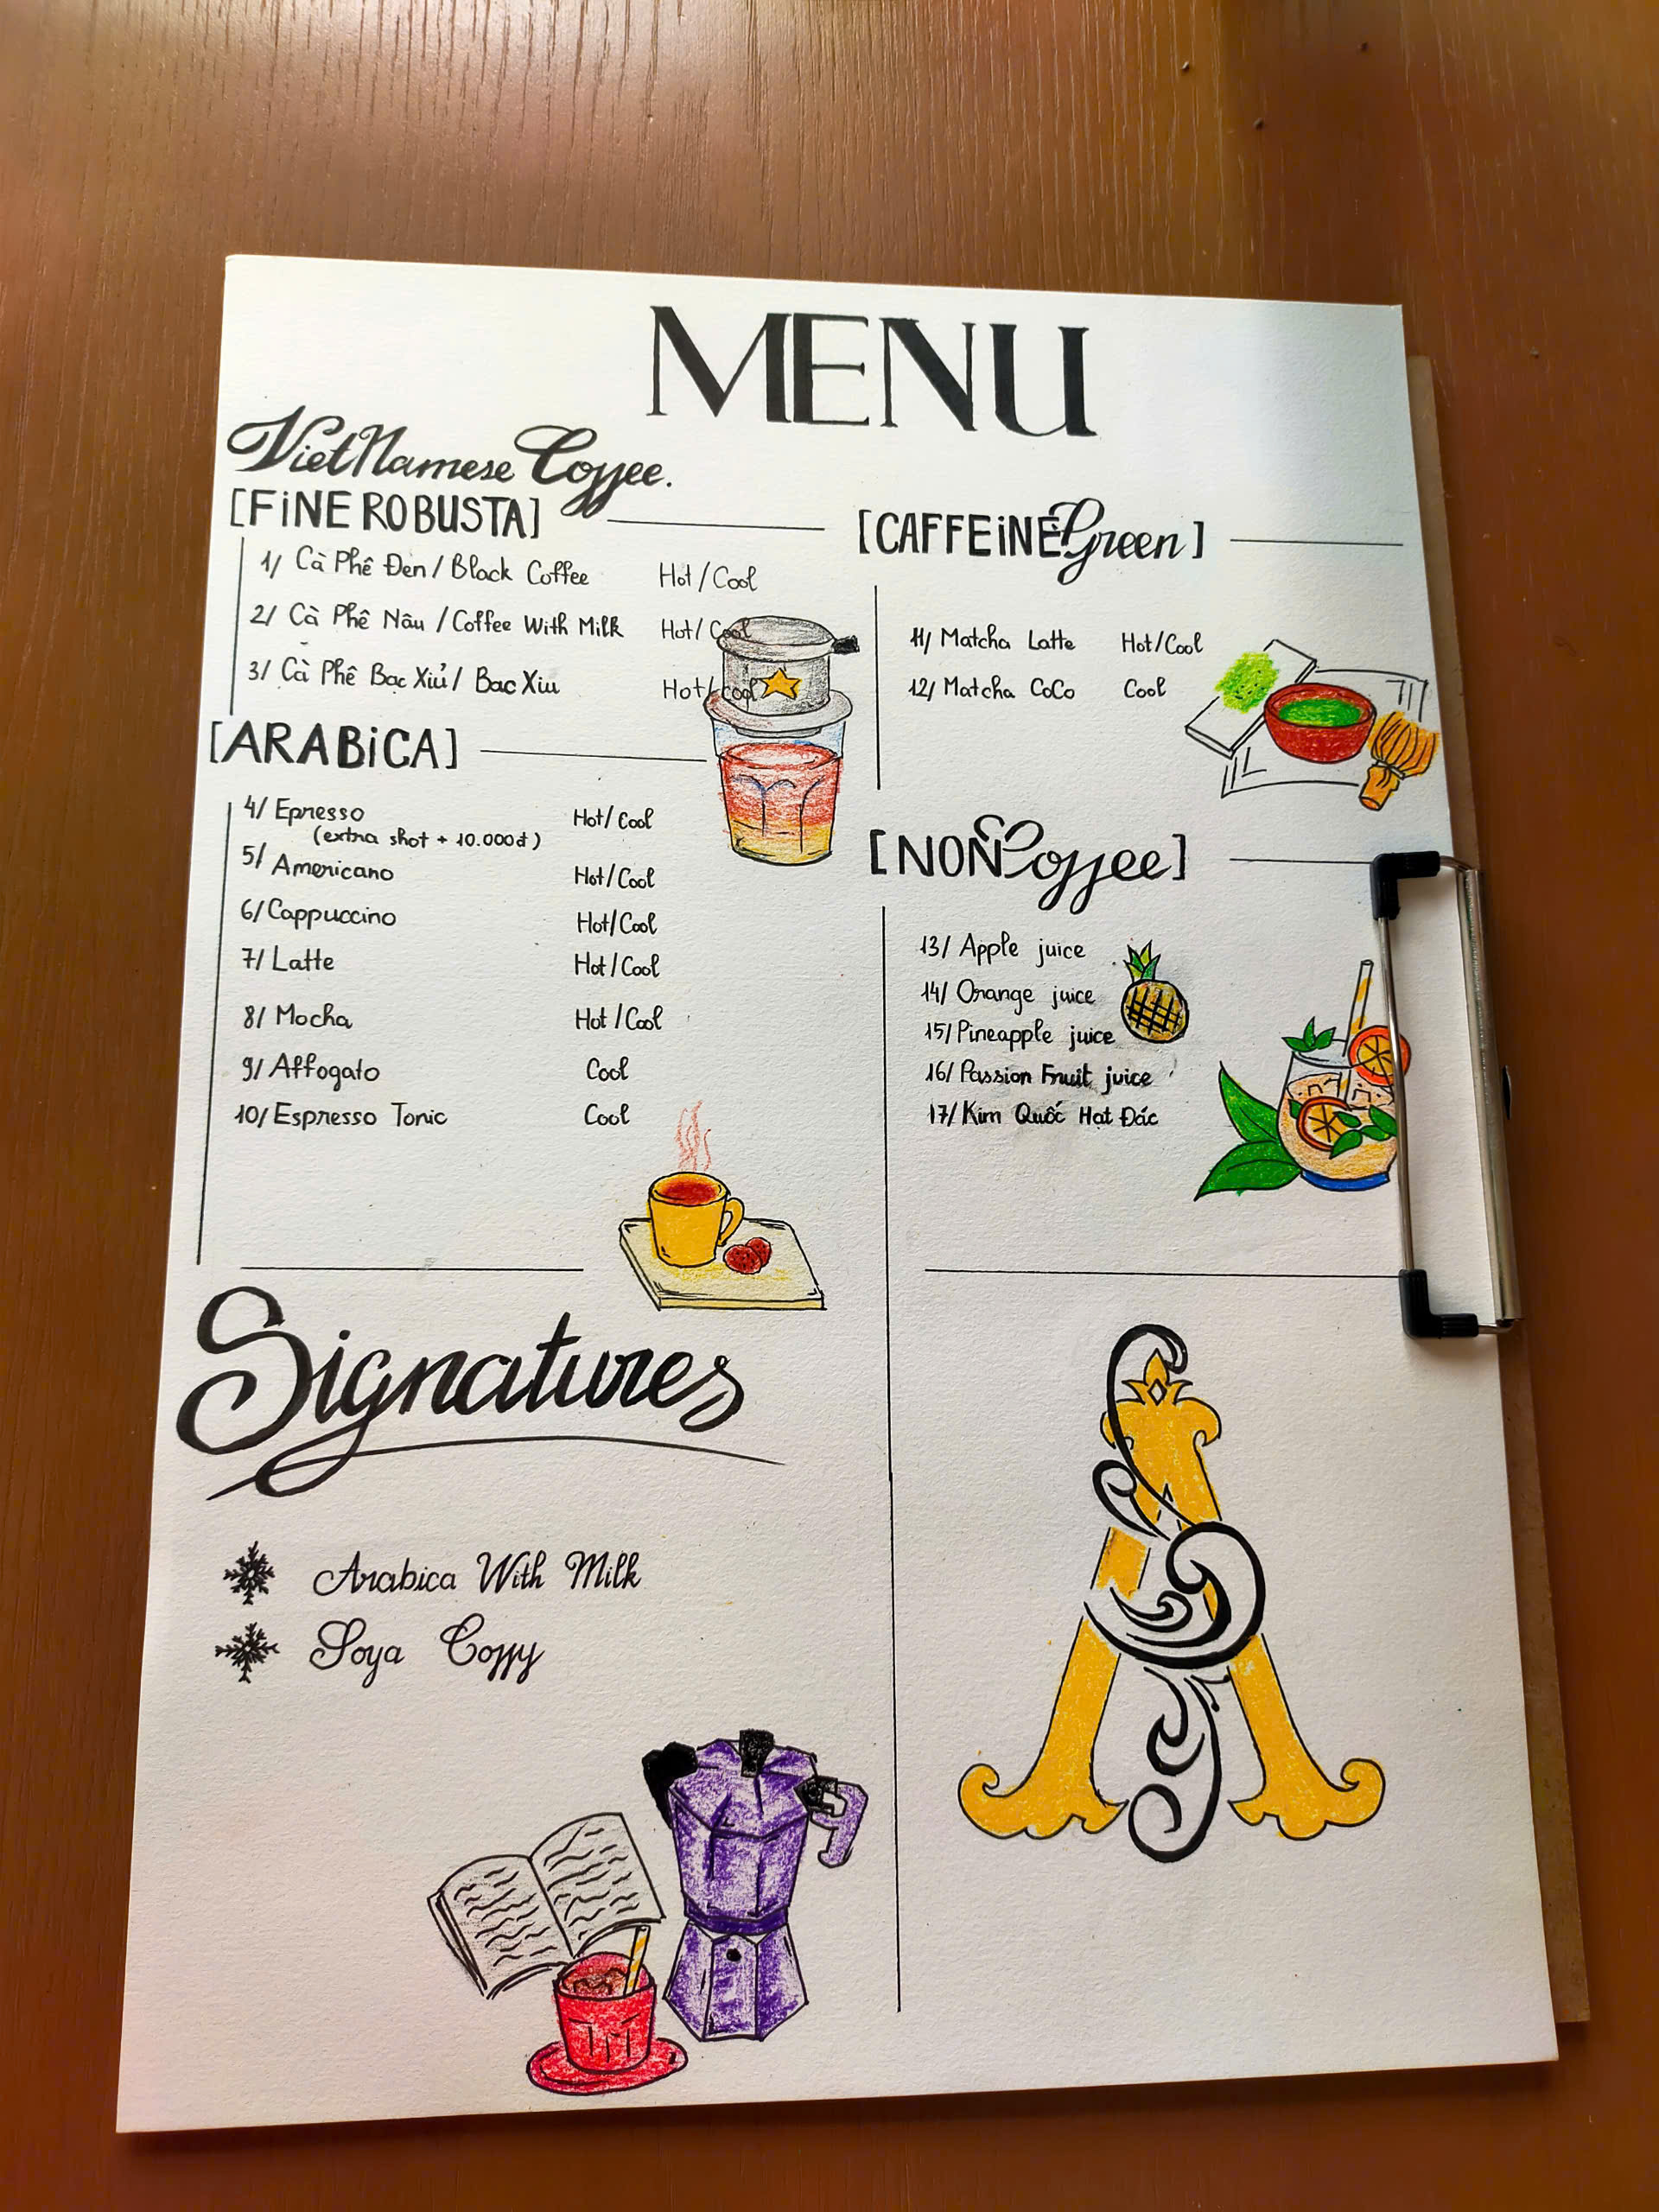 MENU
VietNamese Coffee.
[FiNE ROBUSTA]
1/ Cà Phê Đen / Black Coffee Hot / Cool
2/ Cà Phê Nâu / Coffee With Milk Hot / Cool
3/ Cà Phê Bạc Xiủ / Bac Xiu Hot / cool
[ARABiCA]
4/ Epresso Hot / Cool
(extra shot + 10.000đ)
5/ Americano Hot / Cool
6/ Cappuccino Hot/Cool
7/ Latte Hot / Cool
8/ Mocha Hot / Cool
9/ Affogato Cool
10/ Espresso Tonic Cool
[CAFFEiNE Green]
11/ Matcha Latte Hot/Cool
12/ Matcha CoCo Cool
[NON Coffee]
13/ Apple juice
14/ Orange juice
15/ Pineapple juice
16/ Passion Fruit juice
17/ Kim Quốc Hạt Đác
Signatures
Arabica With Milk
Soya Coffy
A